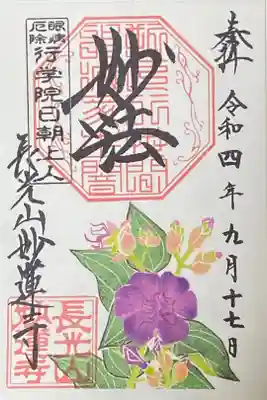 奉拝 令和四年九月十七日
妙法
眼病
厄除
行学院日朝上人
長光山妙蓮寺
長光山
妙蓮寺